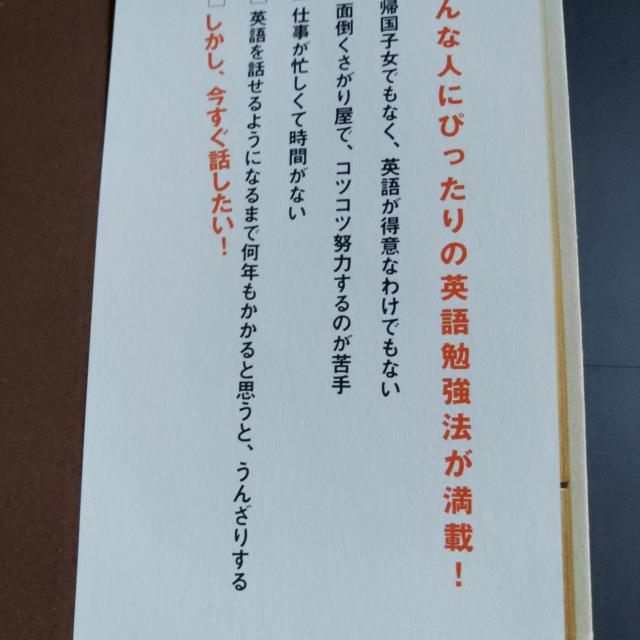 んな人にぴったりの英語勉強法が満載！
帰国子女でもなく、英語が得意なわけでもない
面倒くさがり屋で、コツコツ努力するのが苦手
仕事が忙しくて時間がない
□ 英語を話せるようになるまで何年もかかると思うと、うんざりする
□ しかし、今すぐ話したい！